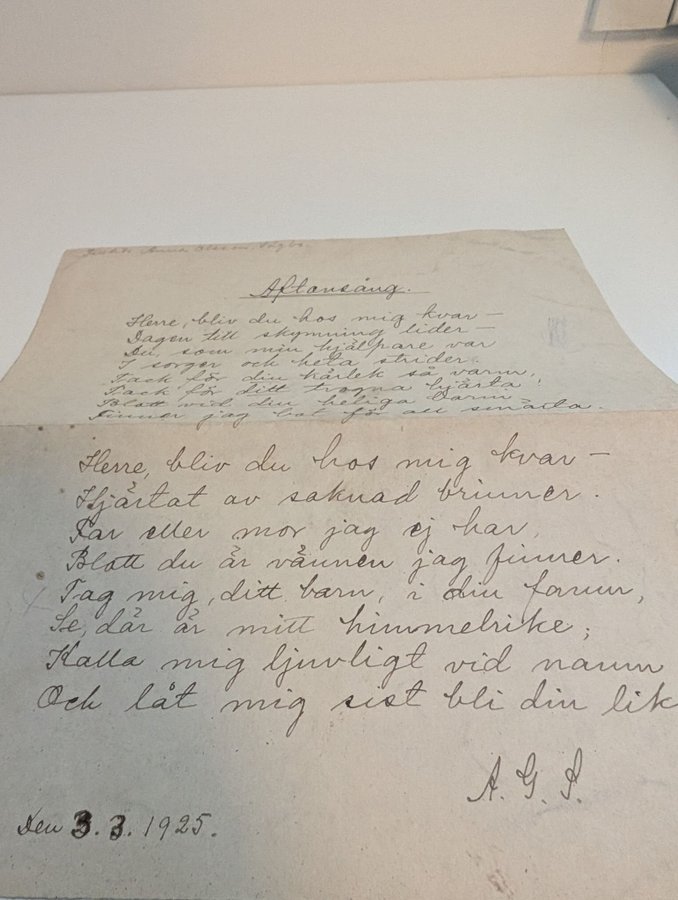 Anna Olsson
Aftonsång.
Herre, bliv du hos mig kvar –
Dagen till skymning lider –
Du, som min hjälpare var
I sorger och heta strider.
Tack för din kärlek så varm,
Tack för ditt trogna hjärta!
Blott vid din heliga barm
Finner jag bot för all smärta.
Herre, bliv du hos mig kvar –
Hjärtat av saknad brinner.
Far eller mor jag ej har,
Blott du är vännen jag finner.
Tag mig, ditt barn, i din famn,
Se, där är mitt himmelrike;
Kalla mig ljuvligt vid namn
Och låt mig sist bli din lik
A. G. S.
Den 3. 3. 1925.